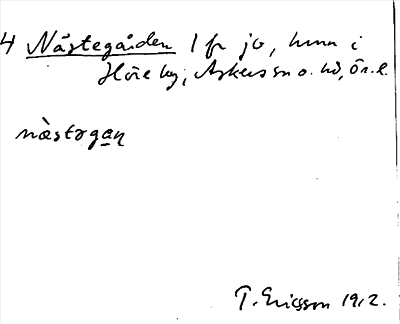 4 Nästegården 1 fr jo, hmn i
Höre by, Askers sn o. hd, Ör. l.
næ̀stəgan̥
T. Ericsson 1912.